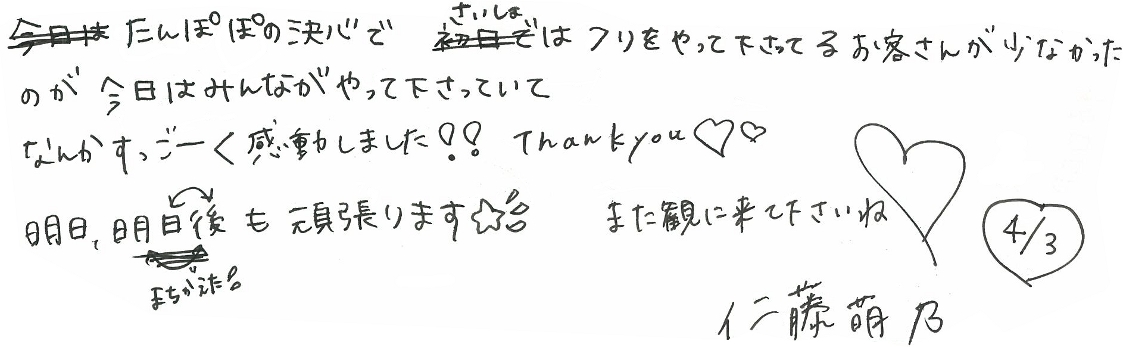 今日は たんぽぽの決心で 初日では フリをやって下さってるお客さんが少なかった
さいしょ
のが 今日はみんながやって下さっていて
なんかすっごーく感動しました!! Thank you♡♡
明日、明日後も頑張ります☆ また観に来て下さいね
まちがえた!
4/3
仁藤萌乃